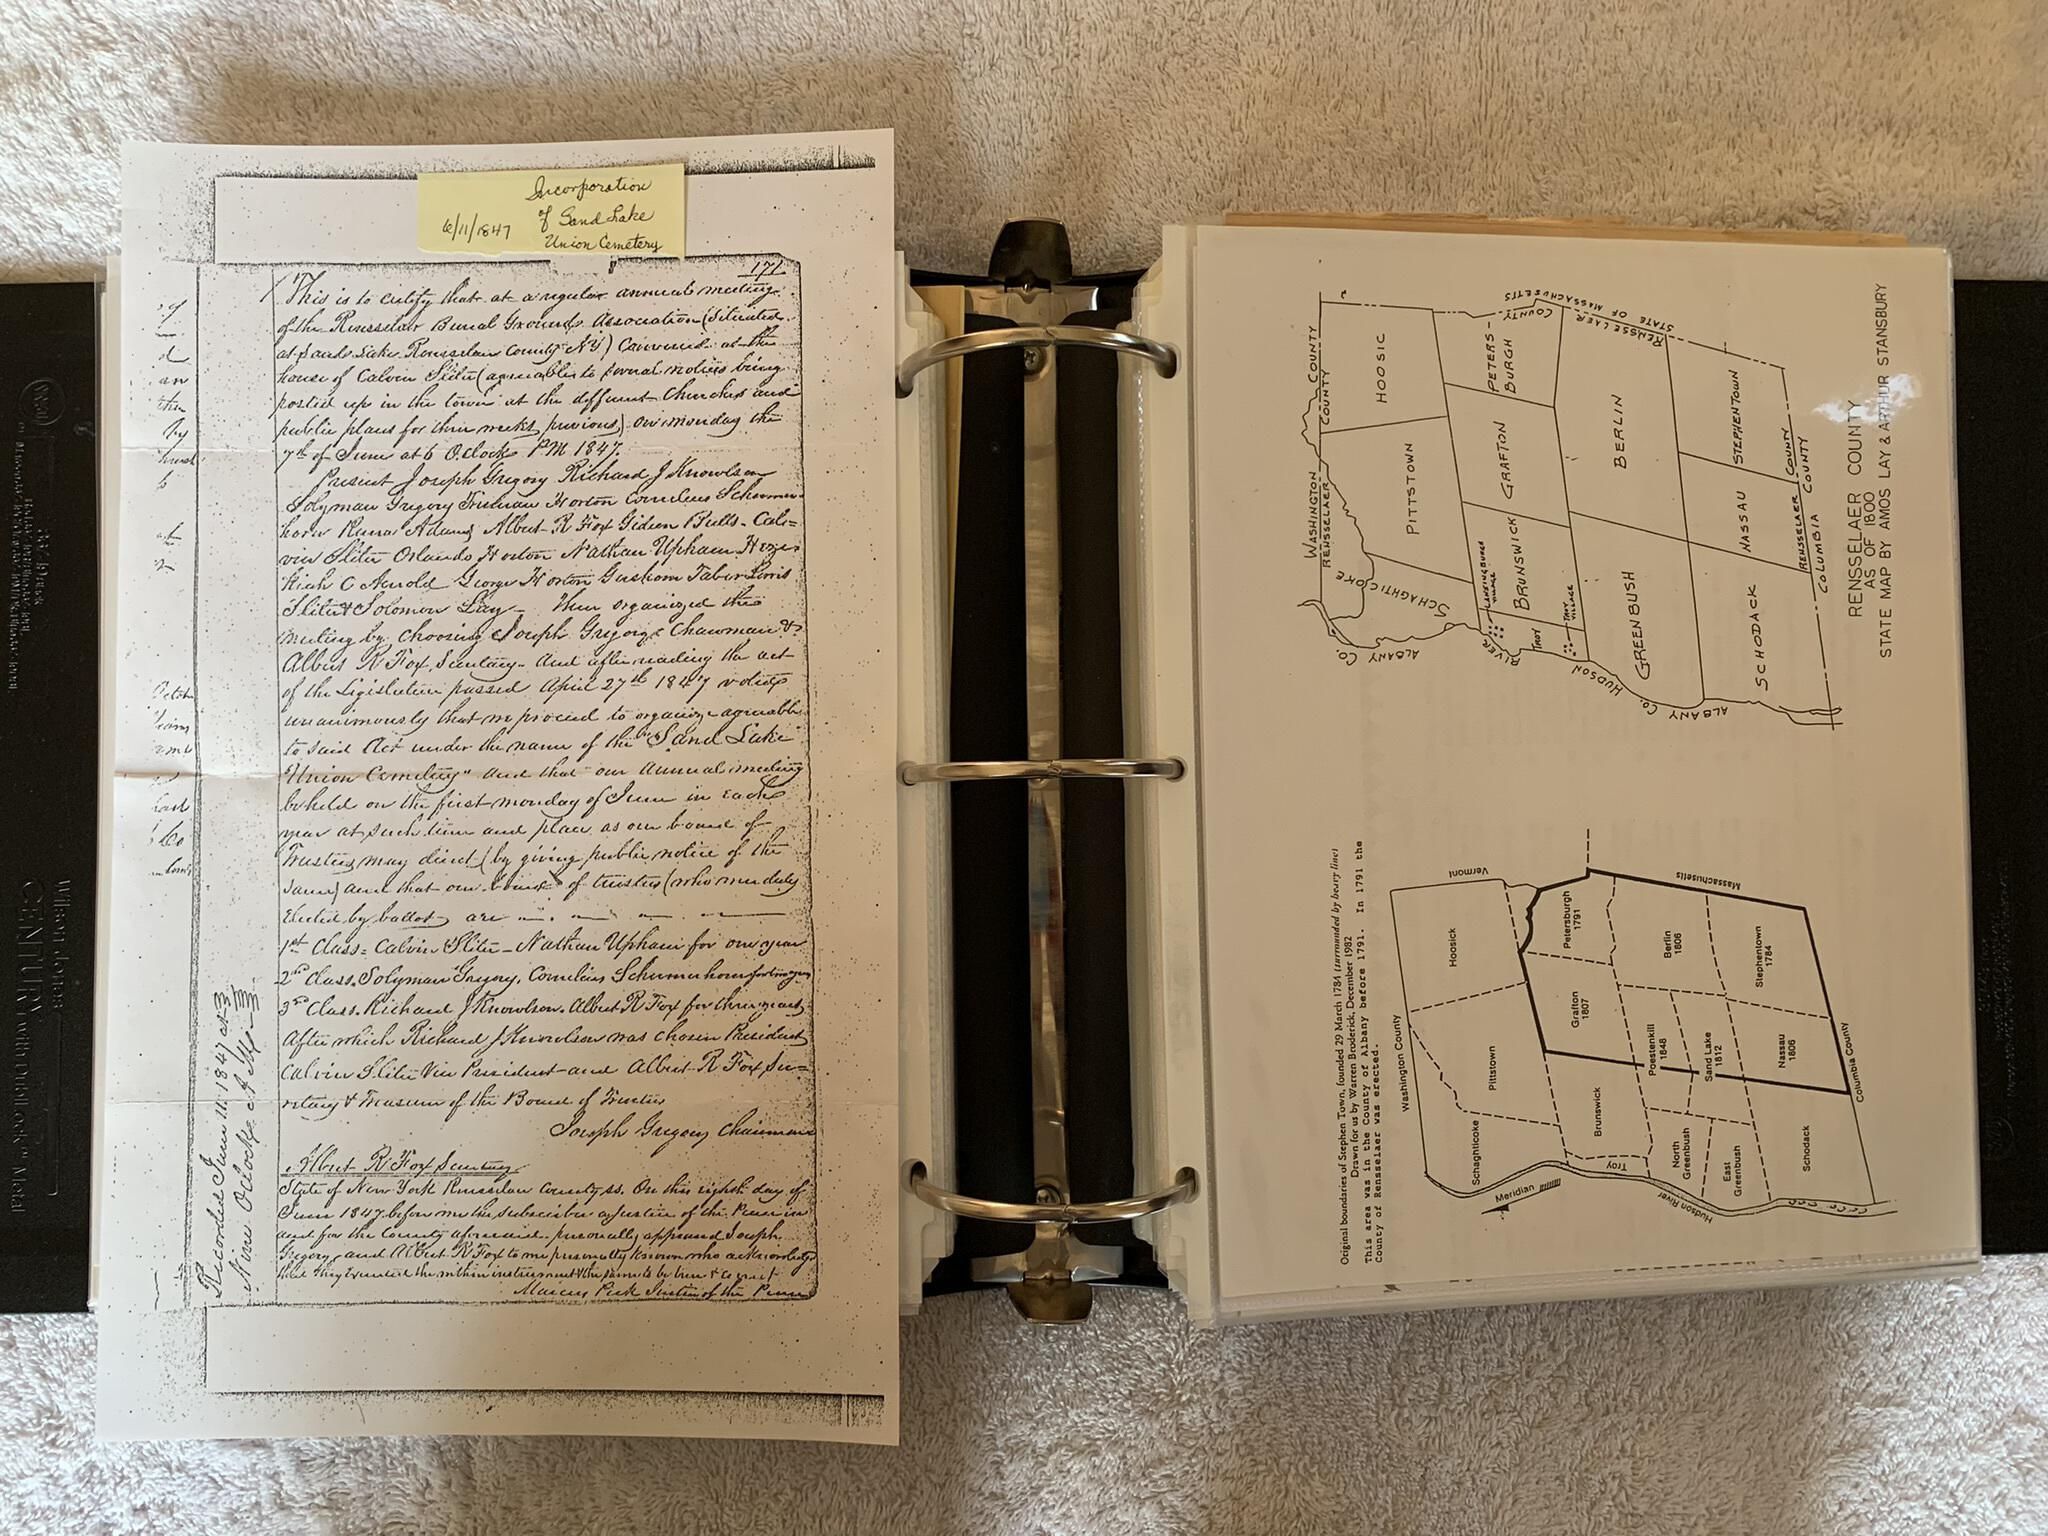 Incorporation
of Sand Lake
6/11/1847 Union Cemetery
171
This is to certify that at a regular annual meeting
of the Rensselaer Burial Grounds Association (situated
at Sand Lake Rensselaer County NY) convened at the
house of Calvin Sliter (agreeable to several notices being
posted up in the town at the different Churches and
public places for three weeks previous) on monday the
7th of June at 6 Oclock PM 1847.
Present Joseph Gregory Richard J Knowlson
Solyman Gregory Freeman Horton Cornelius Schermer
horn Adams Albert R Fox Gideon Butts Cal=
vin Sliter Orlando Horton Nathan Upham Heze
kiah C Arnold George Horton Gersham Taber
Sliter & Solomon Lay – then organized the
meeting by choosing Joseph Gregory Chairman &
Albert R Fox, Secretary – and after reading the act
of the Legislature passed April 27th 1847 voted
unanimously that we proceed to organize agreeable
to said Act under the name of the "Sand Lake
Union Cemetery" and that our annual meeting
be held on the first monday of June in each
year at such time and place as our board of
Trustees may direct (by giving public notice of the
same) and that our board of trustees (who were duly
elected by ballot) are
1st Class = Calvin Sliter – Nathan Upham for one year
2nd Class. Solyman Gregory, Cornelius Schermerhorn for two years
3rd Class. Richard J Knowlson. Albert R Fox for three years
After which Richard J Knowlson was chosen President
Calvin Sliter Vice President and Albert R Fox, Sec=
retary & Treasurer of the Board of Trustees
Joseph Gregory Chairman
Albert R Fox, Secretary
State of New York Rensselaer County ss. On this eighth day of
June 1847 before me the subscriber a Justice of the Peace in
and for the County aforesaid personally appeared Joseph
Gregory and Albert R Fox to me personally known who acknowledged
that they executed the within instrument & the same to be true & correct
Marcus Peck Justice of the Peace
Recorded June 11. 1847 at
Nine Oclock A.M.
Wilson Jones
CENTURY
WASHINGTON COUNTY
RENSSELAER COUNTY
HOOSIC
PITTSTOWN
SCHAGHTICOKE
PETERS-
BURGH
GRAFTON
BRUNSWICK
LANSINGBURGH
VILLAGE
TROY
TROY
VILLAGE
BERLIN
GREENBUSH
STEPHENTOWN
NASSAU
SCHODACK
STATE OF MASSACHUSETTS
RENSSELAER COUNTY
ALBANY CO.
HUDSON RIVER
ALBANY CO.
RENSSELAER COUNTY
COLUMBIA COUNTY
RENSSELAER COUNTY
AS OF 1800
STATE MAP BY AMOS LAY & ARTHUR STANSBURY
Original boundaries of Stephen Town, founded 29 March 1784 (surrounded by heavy line)
Drawn for us by Warren Broderick, December 1982
This area was in the County of Albany before 1791. In 1791 the
County of Rensselaer was erected.
Washington County
Vermont
Massachusetts
Hoosick
Pittstown
Schaghticoke
Petersburgh
1791
Grafton
1807
Brunswick
Troy
Berlin
1806
Poestenkill
1848
Sand Lake
1812
North
Greenbush
East
Greenbush
Stephentown
1784
Nassau
1806
Schodack
Columbia County
Hudson River
Meridian